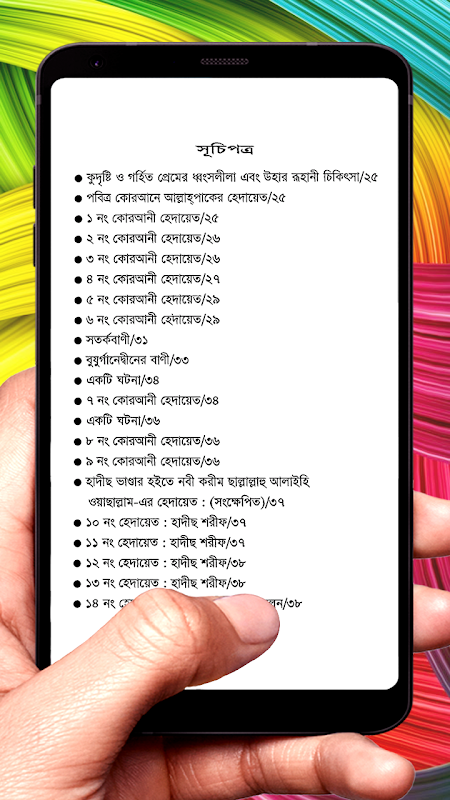 সূচিপত্র
● কুদৃষ্টি ও গর্হিত প্রেমের ধ্বংসলীলা এবং উহার রূহানী চিকিৎসা/২৫
● পবিত্র কোরআনে আল্লাহ্‌পাকের হেদায়েত/২৫
● ১ নং কোরআনী হেদায়েত/২৫
● ২ নং কোরআনী হেদায়েত/২৬
● ৩ নং কোরআনী হেদায়েত/২৬
● ৪ নং কোরআনী হেদায়েত/২৭
● ৫ নং কোরআনী হেদায়েত/২৯
● ৬ নং কোরআনী হেদায়েত/২৯
● সতর্কবাণী/৩১
● বুযুর্গানেদ্বীনের বাণী/৩৩
● একটি ঘটনা/৩৪
● ৭ নং কোরআনী হেদায়েত/৩৪
● একটি ঘটনা/৩৬
● ৮ নং কোরআনী হেদায়েত/৩৬
● ৯ নং কোরআনী হেদায়েত/৩৬
● হাদীছ ভাণ্ডার হইতে নবী করীম ছাল্লাল্লাহু আলাইহি
ওয়াছাল্লাম-এর হেদায়েত : (সংক্ষেপিত)/৩৭
● ১০ নং হেদায়েত : হাদীছ শরীফ/৩৭
● ১১ নং হেদায়েত : হাদীছ শরীফ/৩৭
● ১২ নং হেদায়েত : হাদীছ শরীফ/৩৮
● ১৩ নং হেদায়েত : হাদীছ শরীফ/৩৮
● ১৪ নং /৩৮